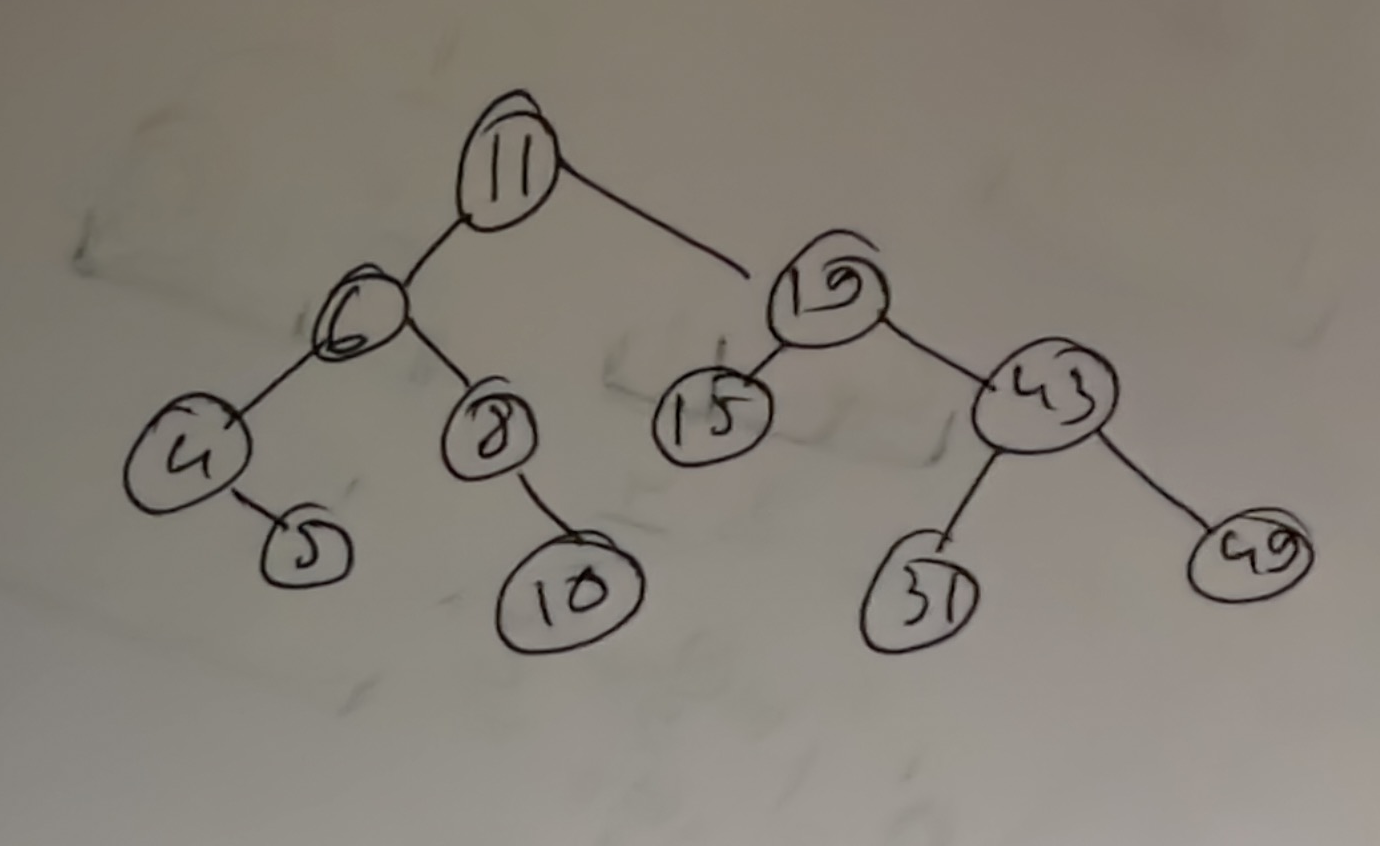 11
6 19
4 8 15 43
5 10 31 49